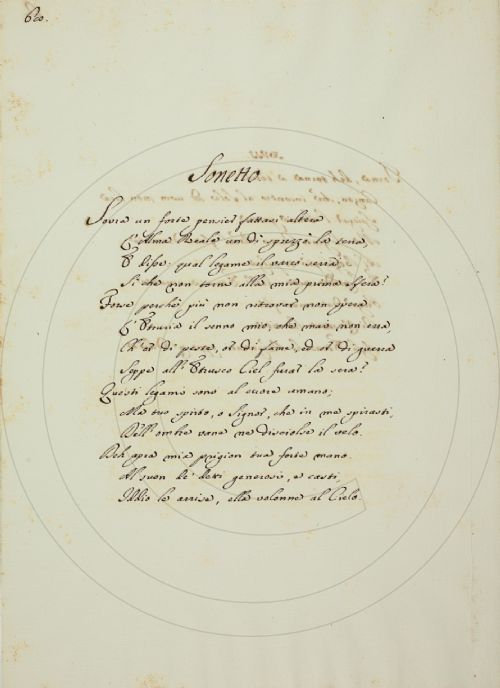 60.
Sonetto
Sovra un forte pensier fattasi altera
L'Alma Reale un dì sprezzò la terra
E disse: qual legame il varco serra
Sì che non torni alla mia prima sfera?
Forse perchè più non ritrovar non spera
L'Etruria il senno mio, che mai non erra,
Ch'or di peste, or di fame, ed or di guerra
Seppe all'Etrusco Ciel furar la sera?
Questi legami sono al cuore umano;
Ma tuo spirto, o Signor, che in me spirasti,
Dell'ombre vane ne disciolse il velo.
Deh apra mia prigion tua forte mano.
Al suon de' detti generosi, e casti,
Iddio le arrise, ella volonne al Cielo.